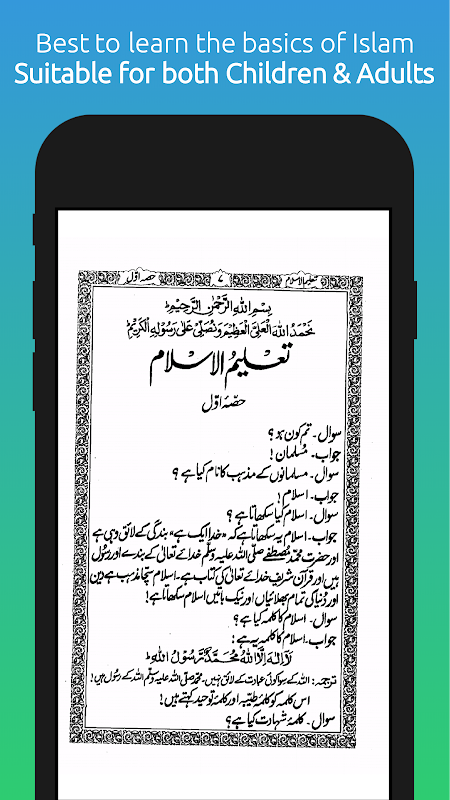 Best to learn the basics of Islam
Suitable for both Children & Adults
تعلیم الاسلام ۷ حصہ اوّل
بِسْمِ اللهِ الرَّحْمٰنِ الرَّحِيْمِ ط
نَحْمَدُ اللهَ الْعَلِيَّ الْعَظِيْمَ وَنُصَلِّيْ عَلٰى رَسُوْلِهِ الْكَرِيْمِ ط
تعلیمُ الاسلام
حصّہ اوّل
سوال۔ تم کون ہو؟
جواب۔ مُسلمان!
سوال۔ مسلمانوں کے مذہب کا نام کیا ہے؟
جواب۔ اسلام!
سوال۔ اسلام کیا سکھاتا ہے؟
جواب۔ اسلام یہ سکھاتا ہے کہ «خدا ایک ہے» بندگی کے لائق وہی ہے
اور حضرت محمّد مُصطفےٰ صلّی اللہ علیہ وسلّم خدائے تعالیٰ کے بندے اور رسُول
ہیں اور قرآن شریف خدائے تعالیٰ کی کتاب ہے۔ اسلام سچّا مذہب ہے دین
اور دُنیا کی تمام بھلائیاں اور نیک باتیں اسلام سکھاتا ہے!
سوال۔ اسلام کا کلمہ کیا ہے؟
جواب۔ اسلام کا کلمہ یہ ہے:
لَآ اِلٰهَ اِلَّا اللهُ مُحَمَّدٌ رَّسُوْلُ اللهِ ط
ترجمہ: اللہ کے سوا کوئی عبادت کے لائق نہیں۔ محمّد صلی اللہ علیہ وسلّم اللہ کے رسُول ہیں!
اس کلمہ کو کلمۂ طیّبہ اور کلمۂ توحید کہتے ہیں!
سوال۔ کلمۂ شہادت کیا ہے؟